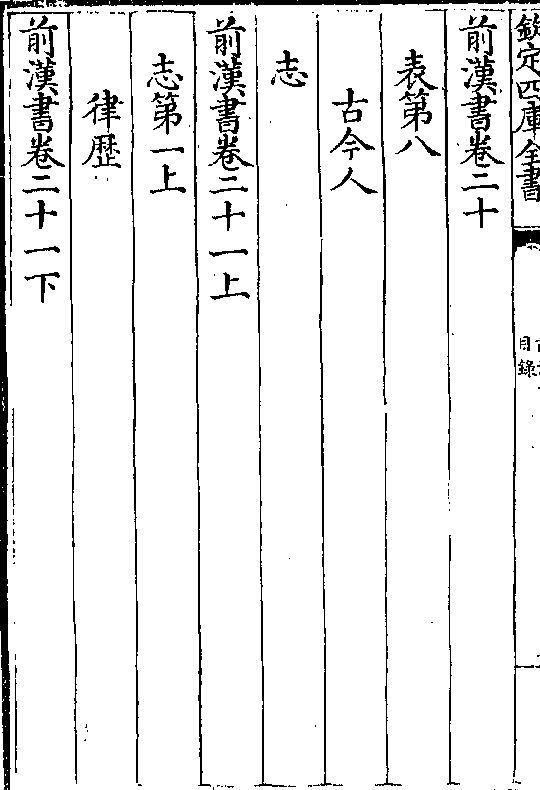 欽定四庫全書
目錄
前漢書卷二十
表第八
古今人
志
前漢書卷二十一上
志第一上
律歴
前漢書卷二十一下